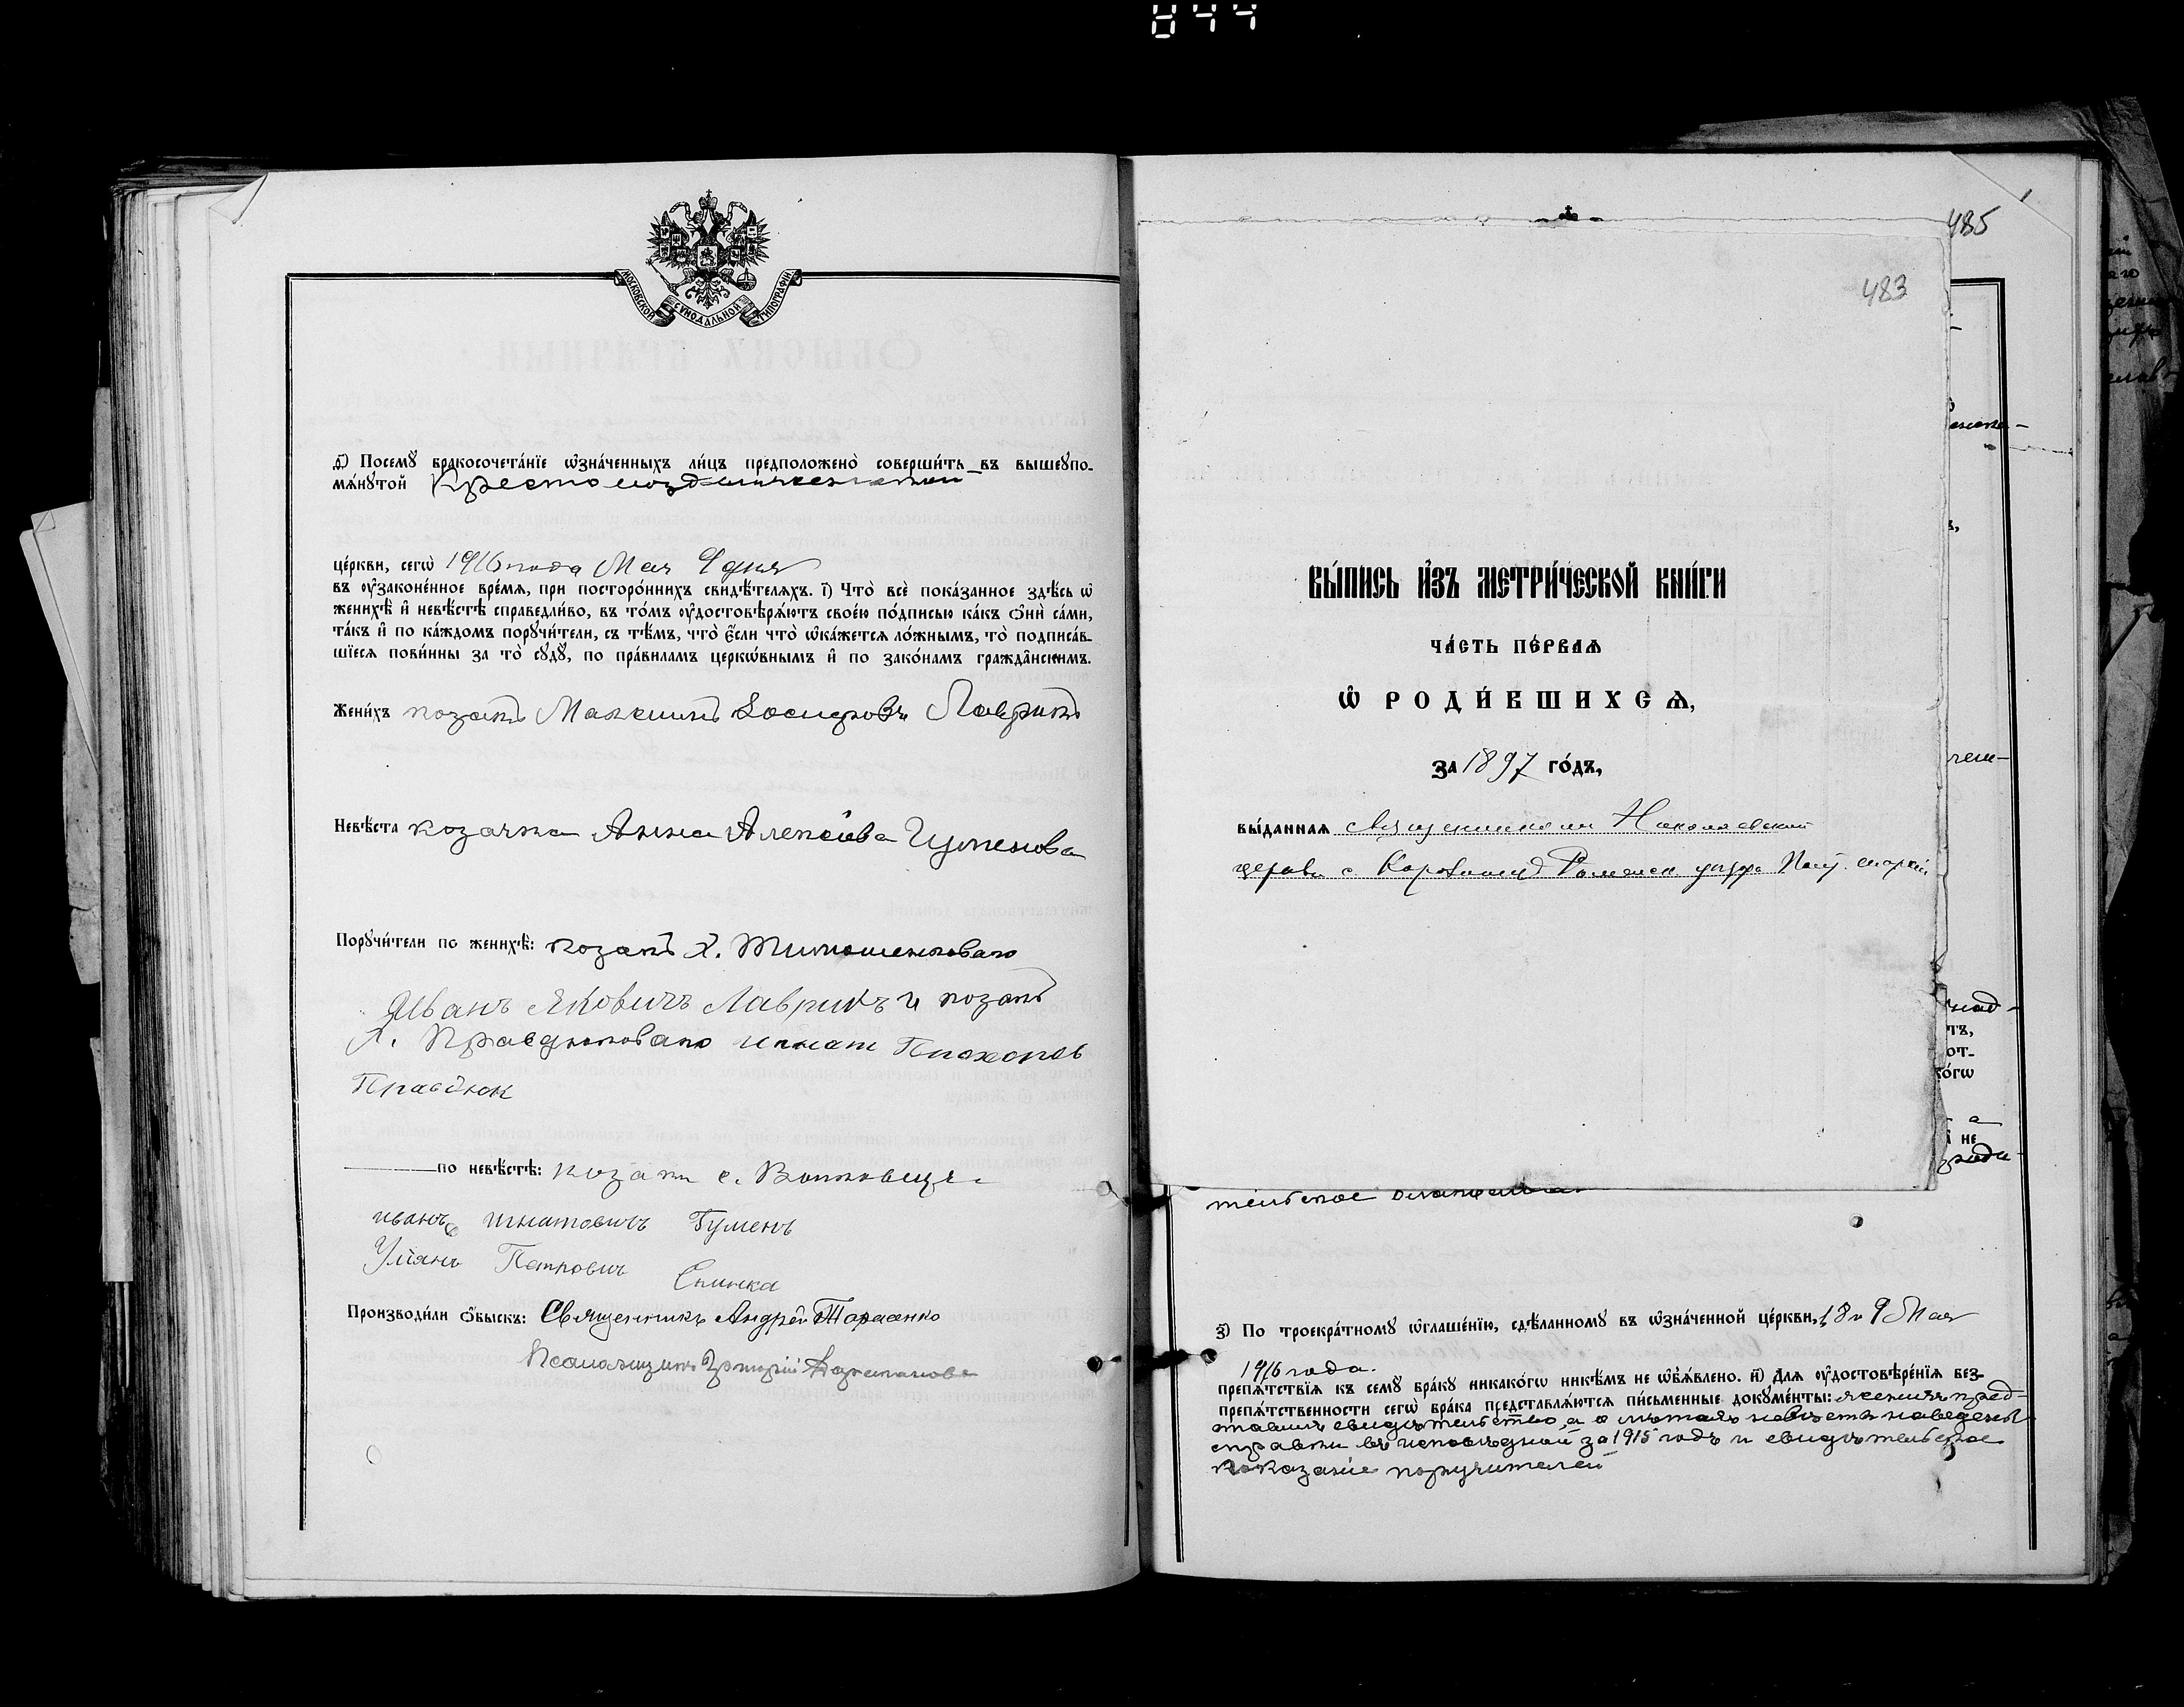 844
МОСКОВСКОЙ СѴНОДАЛЬНОЙ ТИПОГРАФІИ
ѳ҃) Посемꙋ̀ бракосочета́нїе ѡ҆зна́ченныхъ ли́цъ предположено̀ соверши́ть въ вышеꙋпо-
мѧ́нꙋтой Крестовоздвиженской
це́ркви, сегѡ̀ 1916 года Мая 9 дня
въ ᲂу҆законе́нное вре́мѧ, при посторо́ннихъ свидѣ́телѧхъ. і҃) Что̀ всѐ пока́занное здѣ́сь ѡ҆
женихѣ̀ и҆ невѣ́стѣ справедли́во, въ то́мъ ᲂу҆достовѣрѧ́ютъ свое́ю по́дписью ка́къ ѻ҆нѝ са́ми,
та́къ и҆ по ка́ждомъ порꙋчи́тели, съ тѣ́мъ, что̀ є҆́сли что̀ ѡ҆ка́жетсѧ ло́жнымъ, то̀ подписа́в-
шїесѧ пови́нны за то̀ сꙋдꙋ̀, по пра́виламъ церкѡ́внымъ и҆ по зако́намъ гражда̑нскимъ.
Жени́хъ козакъ Максимъ Іосифовъ Лаврикъ
Невѣ́ста козачка Анна Алексіева Гуменова
Порꙋчи́тели по женихѣ̀: козакъ х. Тимошенкова
Иванъ Яковичъ Лаврикъ и козакъ
х. Правдюкова Игнат Прохоров
Правдюк
по невѣ́стѣ: козаки с.
иванъ игнатовичъ Гуменъ
Улїянъ Петровичъ Спинка
Производи́ли ѻ҆́быскъ: Священникъ Андрей Тарасенко
Псаломщикъ Григорій
485
483
ВЫ́ПИСЬ И҆ЗЪ МЕТРИ́ЧЕСКОЙ КНИ́ГИ
ЧА́СТЬ ПЕ́РВАѦ
Ѡ҆ РОДИ́ВШИХСѦ,
за 1897 го́дъ,
вы́данная священникомъ Николаевской
церкви с. Коровинецъ Роменск. уезда Полт. епархіи
тельское
з҃) По троекра́тномꙋ ѡ҆глаше́нїю, сдѣ́ланномꙋ въ ѡ҆зна́ченной це́ркви, 1, 8 и 9 Мая
1916 года.
препѧ́тствїѧ къ семꙋ̀ бра́кꙋ никако́гѡ никѣ́мъ не ѡ҆б̾ѧ́влено. и҃) Длѧ ᲂу҆достовѣре́нїѧ без-
препѧ́тственности сегѡ̀ бра́ка представлѧ́ютсѧ пи́сьменные докꙋме́нты: женихъ пред-
ставилъ свидѣтельство, а о лѣтахъ невѣсты наведены
справки въ исповѣдной за 1915 годъ и свидѣтельское
показаніе поручителей